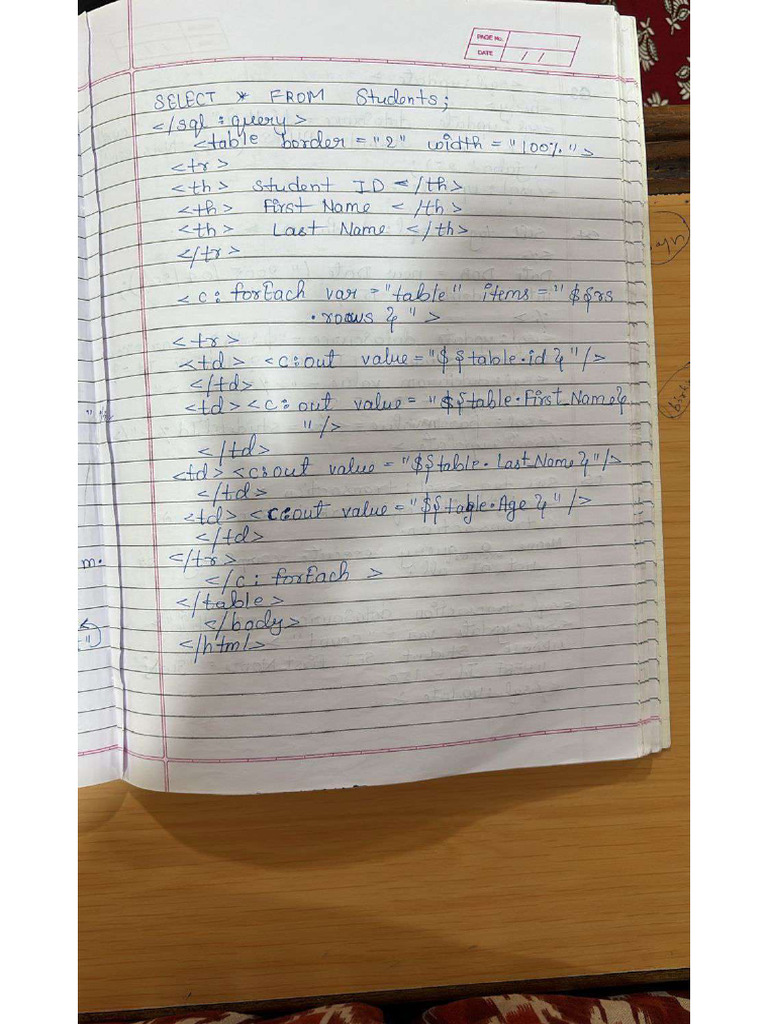 PAGE No.
DATE / /
SELECT * FROM Students;
</sql :query>
<table border = "2" width = "100%">
<tr>
<th> Student ID </th>
<th> First Name </th>
<th> Last Name </th>
</tr>
<c: forEach var = "table" items = "${rs
.rows } ">
<tr>
<td> <c:out value = "${table.id }"/>
</td>
<td><c: out value = "${table.First_Name}
"/>
</td>
<td><c:out value = "${table.Last_Name}"/>
</td>
<td> <c:out value = "${table.Age }"/>
</td>
</tr>
</c: forEach >
</table>
</body>
</html>
m.